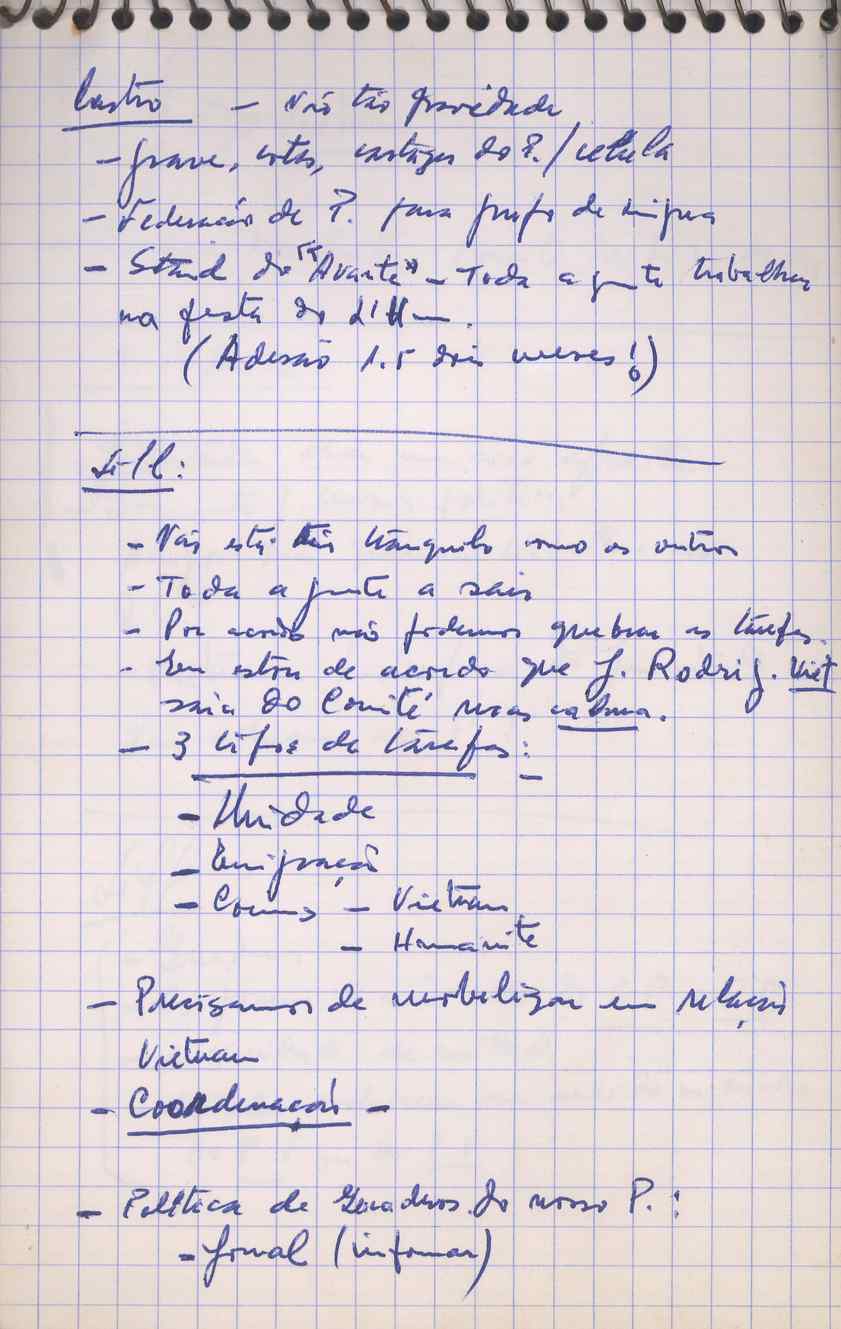 Castro — Não tão gravidade
— grave, cotas, cartazes do P. / célula
— Federação de P. para grupo de língua
— Stand do "Avante" — Toda a gente trabalhar
na festa do L'Hum.
(Adesão 1.5 dois meses!)
:
— Não está tão tranquilo como os outros
— Toda a gente a sair
— Por acordo não podemos quebrar as tarefas.
— Eu estou de acordo que J. Rodrig. Viet
saia do Comité mas calma.
— 3 tipos de tarefas:
— Unidade
— Emigração
— Comuns — Vietnam
— Humanite
— Precisamos de mobilizar em relação
Vietnam
— Coordenação —
— Política de Quadros do nosso P. :
— Jornal (informar)